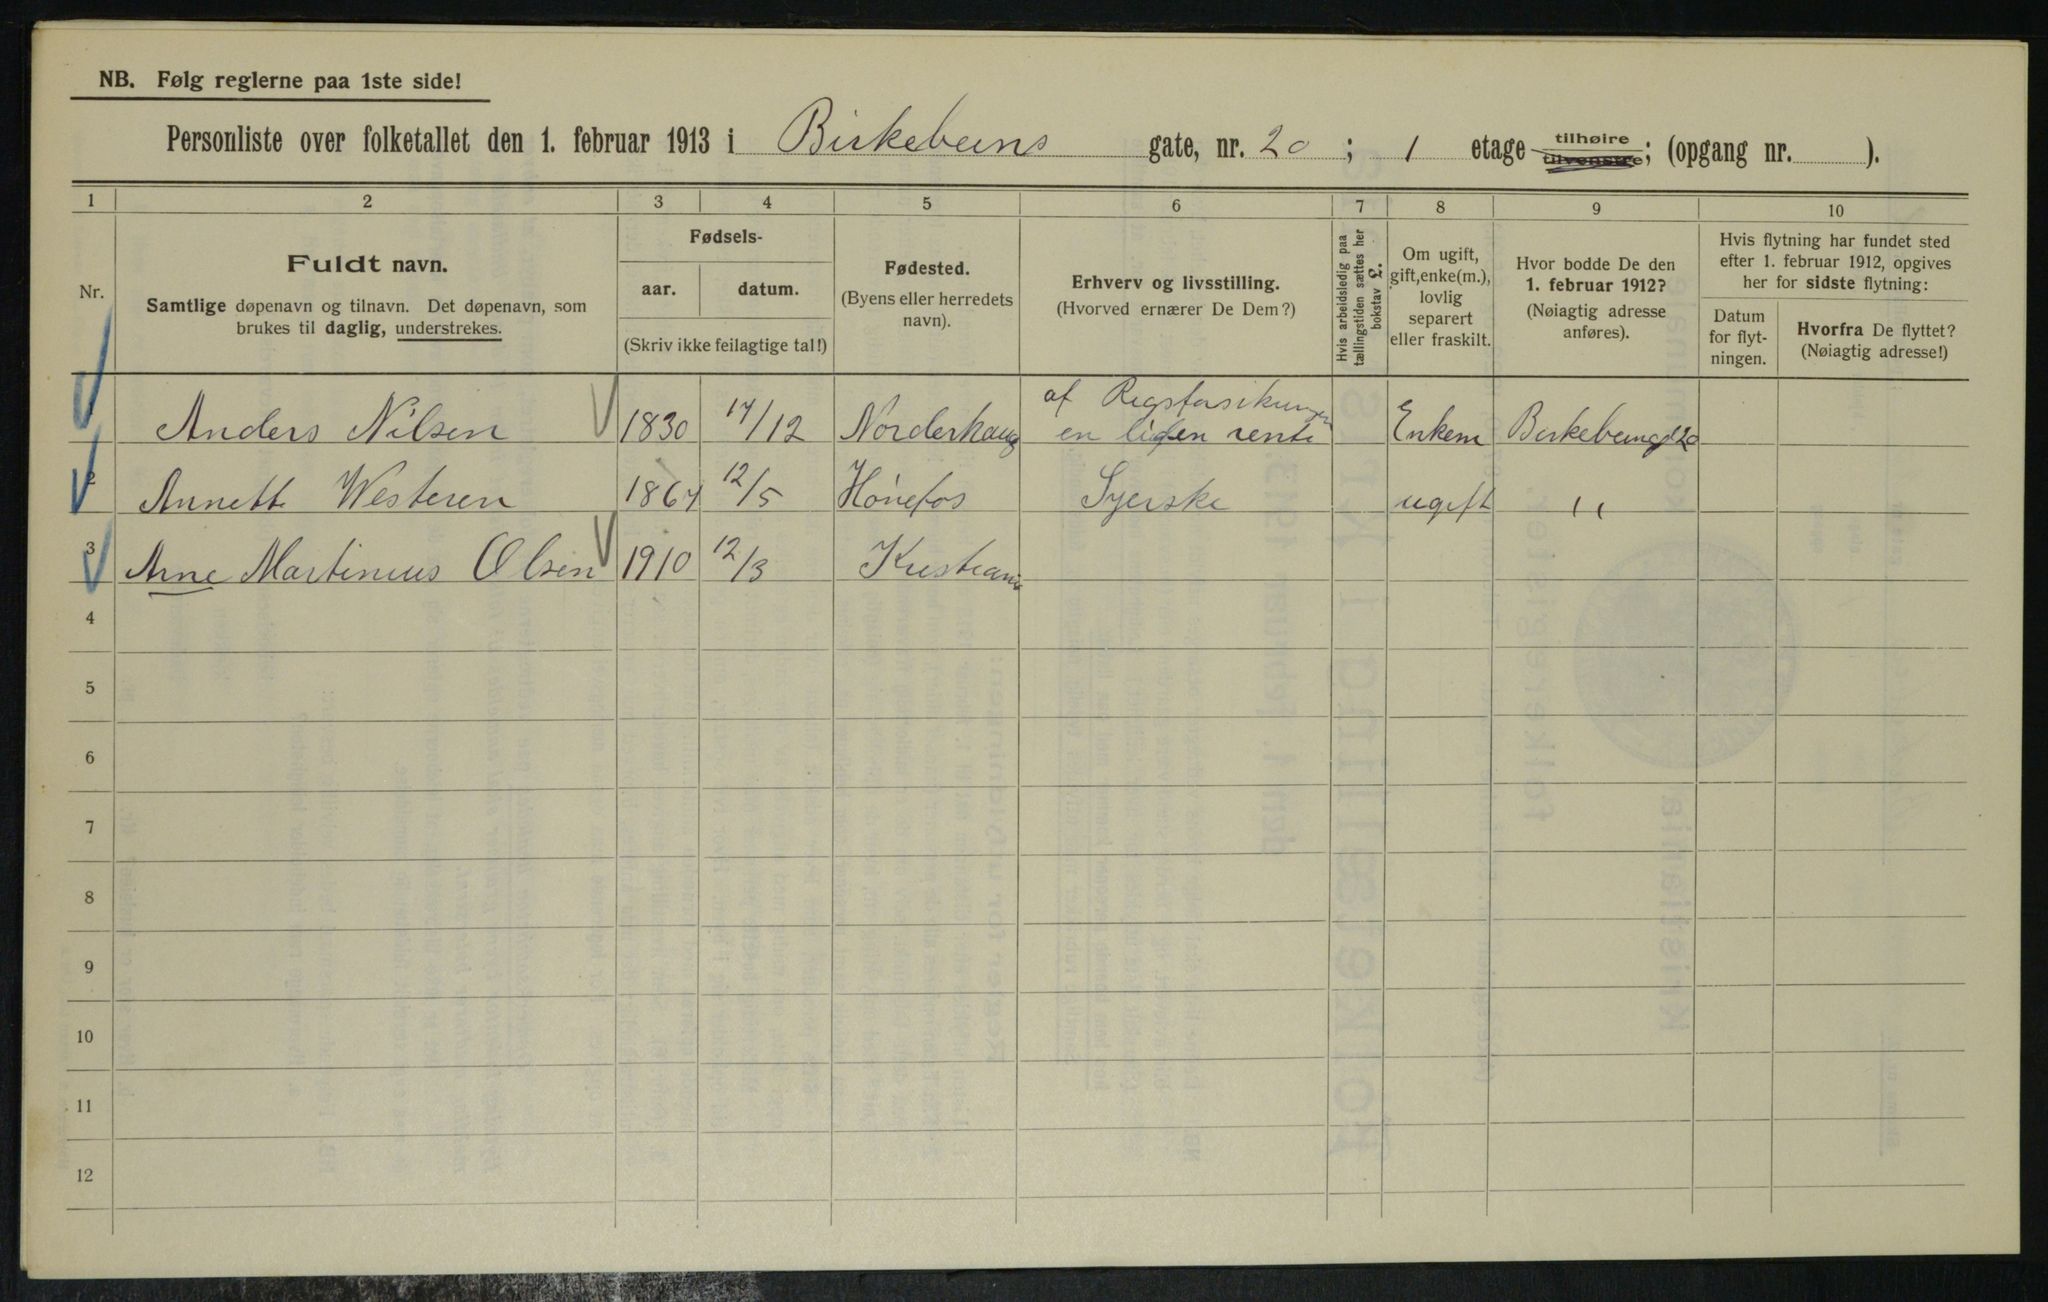 NB. Følg reglerne paa 1ste side!
Personliste over folketallet den 1. februar 1913 i Birkebeens gate, nr. 20 ; 1 etage tilhøire tilvenstre; (opgang nr. ).
1 2 3 4 5 6 7 8 9 10
Nr.
Fuldt navn.
Samtlige døpenavn og tilnavn. Det døpenavn, som
brukes til daglig, understrekes.
Fødsels-
aar. datum.
(Skriv ikke feilagtige tal!)
Fødested.
(Byens eller herredets
navn).
Erhverv og livsstilling.
(Hvorved ernærer De Dem?)
Hvis arbeidsledig paa
tællingstiden sættes her
bokstav L.
Om ugift,
gift, enke(m.),
lovlig
separert
eller fraskilt.
Hvor bodde De den
1. februar 1912?
(Nøiagtig adresse
anføres).
Hvis flytning har fundet sted
efter 1. februar 1912, opgives
her for sidste flytning:
Datum
for flyt-
ningen.
Hvorfra De flyttet?
(Nøiagtig adresse!)
1 Anders Nilsen 1830 17/12 Norderhaug af Rigsforsikringen en liden rente Enkem Birkebeinegd 20
2 Annette Westeren 1867 12/5 Hønefos Syerske ugift "
3 Arne Martinius Olsen 1910 12/3 Kristiania
4
5
6
7
8
9
10
11
12